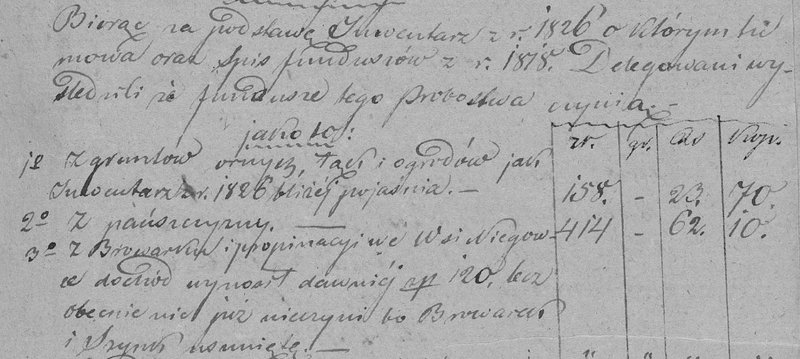 Biorąc za podstawę Inwentarz z r. 1826 o którym tu
mowa oraz spis funduszów z r. 1818. Delegowani wy-
śledzili że fundusze tego Probostwa czynią.-
jako to:
zł. gr. Rs Kop.
1o Z gruntów ornych, łąk i ogrodów jak
Inwentarz z r. 1826 bliżéj pojaśnia.- 158. - 23. 70.
2o Z pańszczyzny. 414 - 62. 10.
3o Z Browarku i propinacyi we Wsi Niegow-
ce dochód wynosił dawniéj zp 120, lecz
obecnie nic już nieczyni bo Browarek
i Szynk usunięte.-